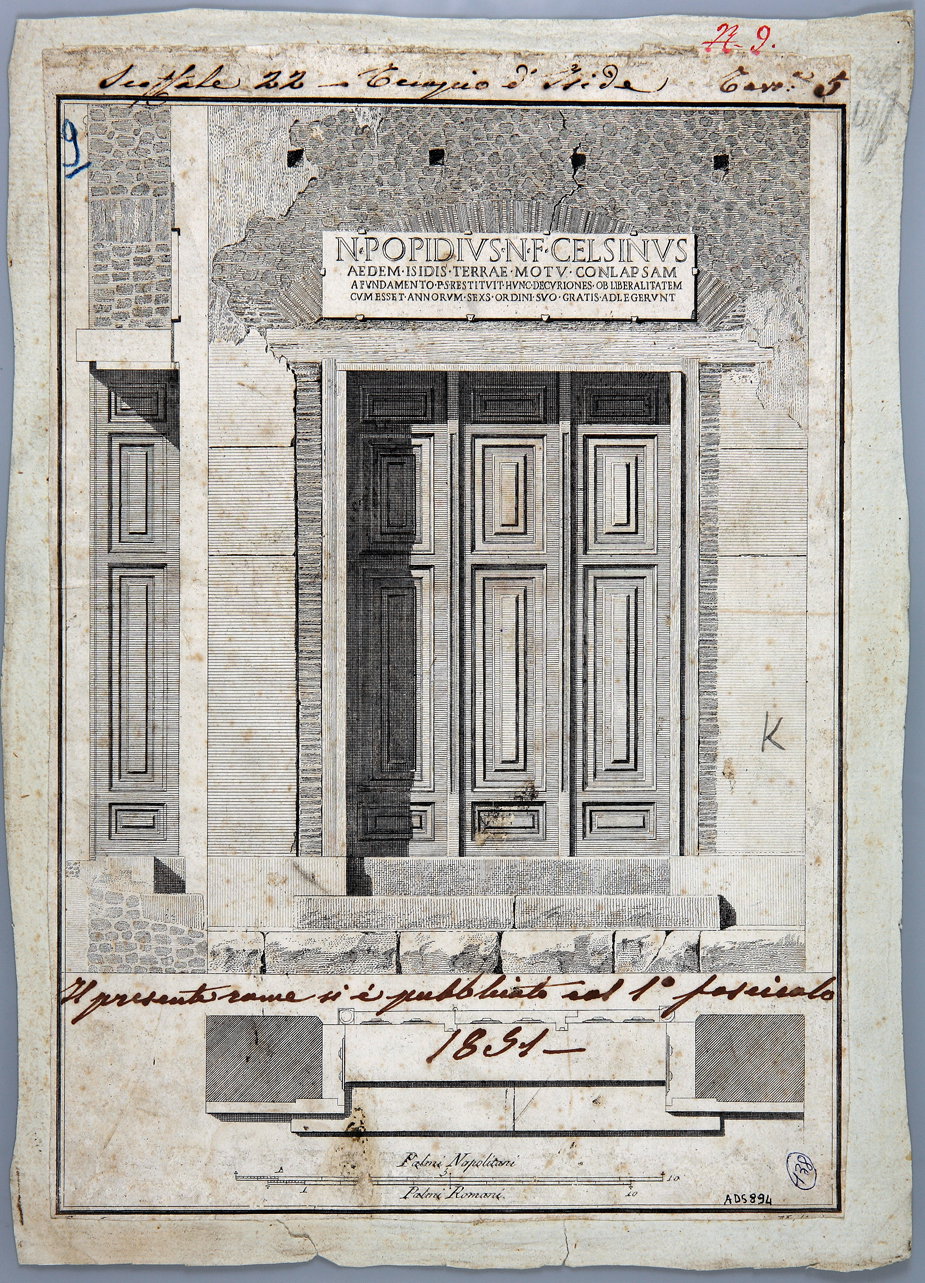 N. 9.
Scaffale 22 – Tempio d'Iside Tav.ª 5
9
N·POPIDIVS·N·F·CELSINVS
AEDEM·ISIDIS·TERRAE·MOTV·CONLAPSAM
A FVNDAMENTO·P·S·RESTITVIT·HVNC·DECVRIONES·OB LIBERALITATEM
CVM ESSET·ANNORVM·SEXS·ORDINI·SVO·GRATIS·ADLEGERVNT
K
Il presente rame si è pubblicato col 1° fascicolo
1851 –
Palmi Napolitani
1 5 10
1 10
Palmi Romani
ADS 894